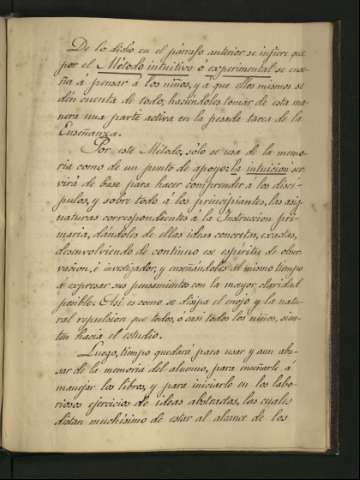 De lo dicho en el párrafo anterior se infiere que
por el Método intuitivo ó experimental se ense-
ña á pensar á los niños, y á que ellos mismos se
dén cuenta de todo, haciéndoles tomar de esta ma-
nera una parte activa en la pesada tarea de la
Enseñanza.
Por este Método, sólo se usa de la memo-
ria como de un punto de apoyo: la intuicion ser-
virá de base para hacer comprender á los discí-
pulos, y sobre todo á los principiantes, las asig-
naturas correspondientes á la Instruccion pri-
maria, dándoles de ellas ideas concretas, exactas,
desenvolviendo de continuo su espíritu de obser-
vacion, é investigador, y enseñándoles al mismo tiempo
á expresar sus pensamientos con la mayor claridad
posible. Así es como se disipa el enojo y la natu-
ral repulsion que todos, ó casi todos los niños, sien-
ten hacia el estudio.
Luego, tiempo quedará para usar y aun abu-
sar de la memoria del alumno, para enseñarle á
manejar los libros, y para iniciarlo en los labo-
riosos ejercicios de ideas abstractas, las cuales
distan muchísimo de estar al alcance de los